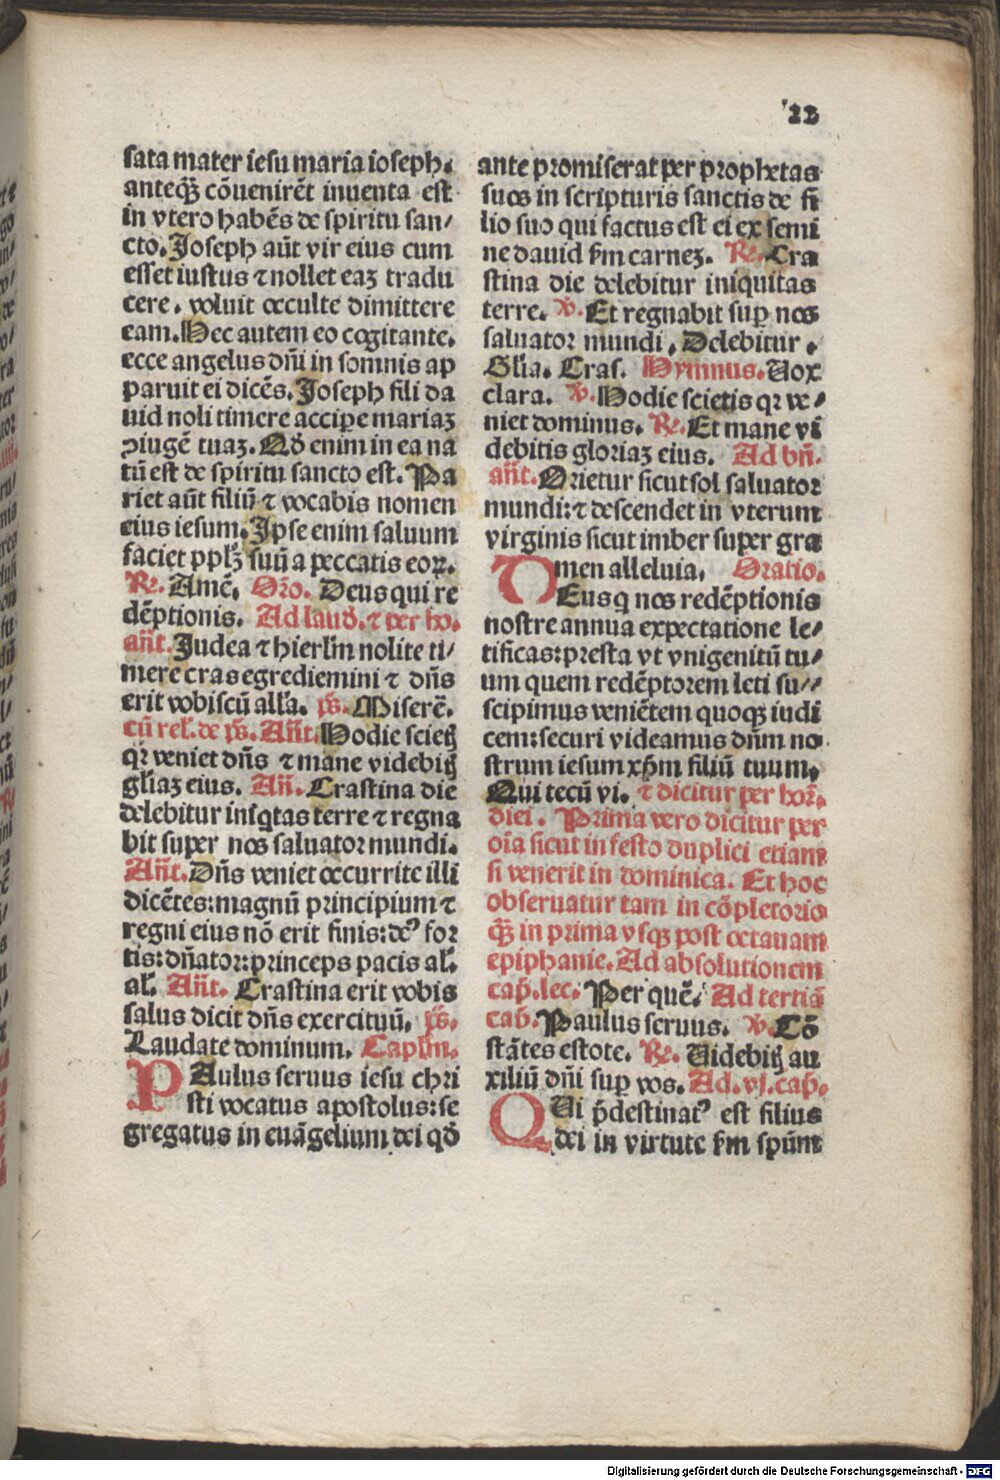 22
sata mater iesu maria ioseph.
anteq̃ȝ cõuenirẽt inuenta est
in vtero habẽs de spiritu san⸗
cto. Joseph aũt vir eius cum
esset iustus ⁊ nollet eaȝ tradu
cere. voluit occulte dimittere
eam. Hec autem eo cogitante.
ecce angelus dñi in somnis ap
paruit ei dicẽs. Joseph fili da
uid noli timere accipe mariaȝ
ↄiugẽ tuaȝ. Qđ enim in ea na
tũ est de spiritu sancto est. Pa
riet aũt filiũ ⁊ vocabis nomen
eius iesum. Jpse enim saluum
faciet pplȝ̃ suũ a peccatis eoꝝ.
℟. Amẽ. Or̃o. Deus qui re
dẽptionis. Ad laud̃. ⁊ per ho.
añt. Judea ⁊ hierl̃m nolite ti⸗
mere cras egrediemini ⁊ dñs
erit vobiscũ all̃a. p̃s. Miserẽ.
cũ rel̃. de p̃s. Añt. Hodie scietꝭ
qꝛ veniet dñs ⁊ mane videbitꝭ
gl̃iaȝ eius. Añ. Crastina die
delebitur iniq̃tas terre ⁊ regna
bit super nos saluator mundi.
Añt. Dñs veniet occurrite illi
dicẽtes: magnũ principium ⁊
regni eius nõ erit finis: deꝰ for
tis: dñator: princeps pacis al̃.
al̃. Añt. Crastina erit vobis
salus dicit dñs exercituũ. p̃s.
Laudate dominum. Capl̃m.
PAulus seruus iesu chri
sti vocatus apostolus: se
gregatus in euãgelium dei qđ
ante promiserat per prophetas
suos in scripturis sanctis de fi
lio suo qui factus est ei ex semi
ne dauid ẜm carneȝ. ℟. Cra
stina die delebitur iniquitas
terre. ℣. Et regnabit suꝑ nos
saluator mundi. Delebitur.
Gl̃ia. Cras. Hymnus. Uox
clara. ℣. Hodie scietis qꝛ ve⸗
niet dominus. ℟. Et mane vi
debitis gloriaȝ eius. Ad bñ.
añt. Orietur sicut sol saluator
mundi: ⁊ descendet in vterum
virginis sicut imber super gra
men alleluia. Oratio.
DEus q̃ nos redẽptionis
nostre annua expectatione le⸗
tificas: presta vt vnigenitũ tu⸗
um quem redẽptorem leti su⸗
scipimus veniẽtem quoqȝ iudi
cem: securi videamus dñm no
strum iesum xp̃m filiũ tuum.
Qui tecũ vi. ⁊ dicitur per hor̃.
diei. Prima vero dicitur per
oĩa sicut in festo duplici etiam
si venerit in dominica. Et hoc
obseruatur tam in cõpletorio
q̃ȝ in prima vsqȝ post octauam
epiphanie. Ad absolutionem
cap̃. lec. Per quẽ. Ad tertiã
cap̃. Paulus seruus. ℣. Cõ
stãtes estote. ℟. Uidebitꝭ au
xiliũ dñi suꝑ vos. Ad. vj. cap̃.
QUi p̃destinatꝰ est filius
dei in virtute ẜm spũm